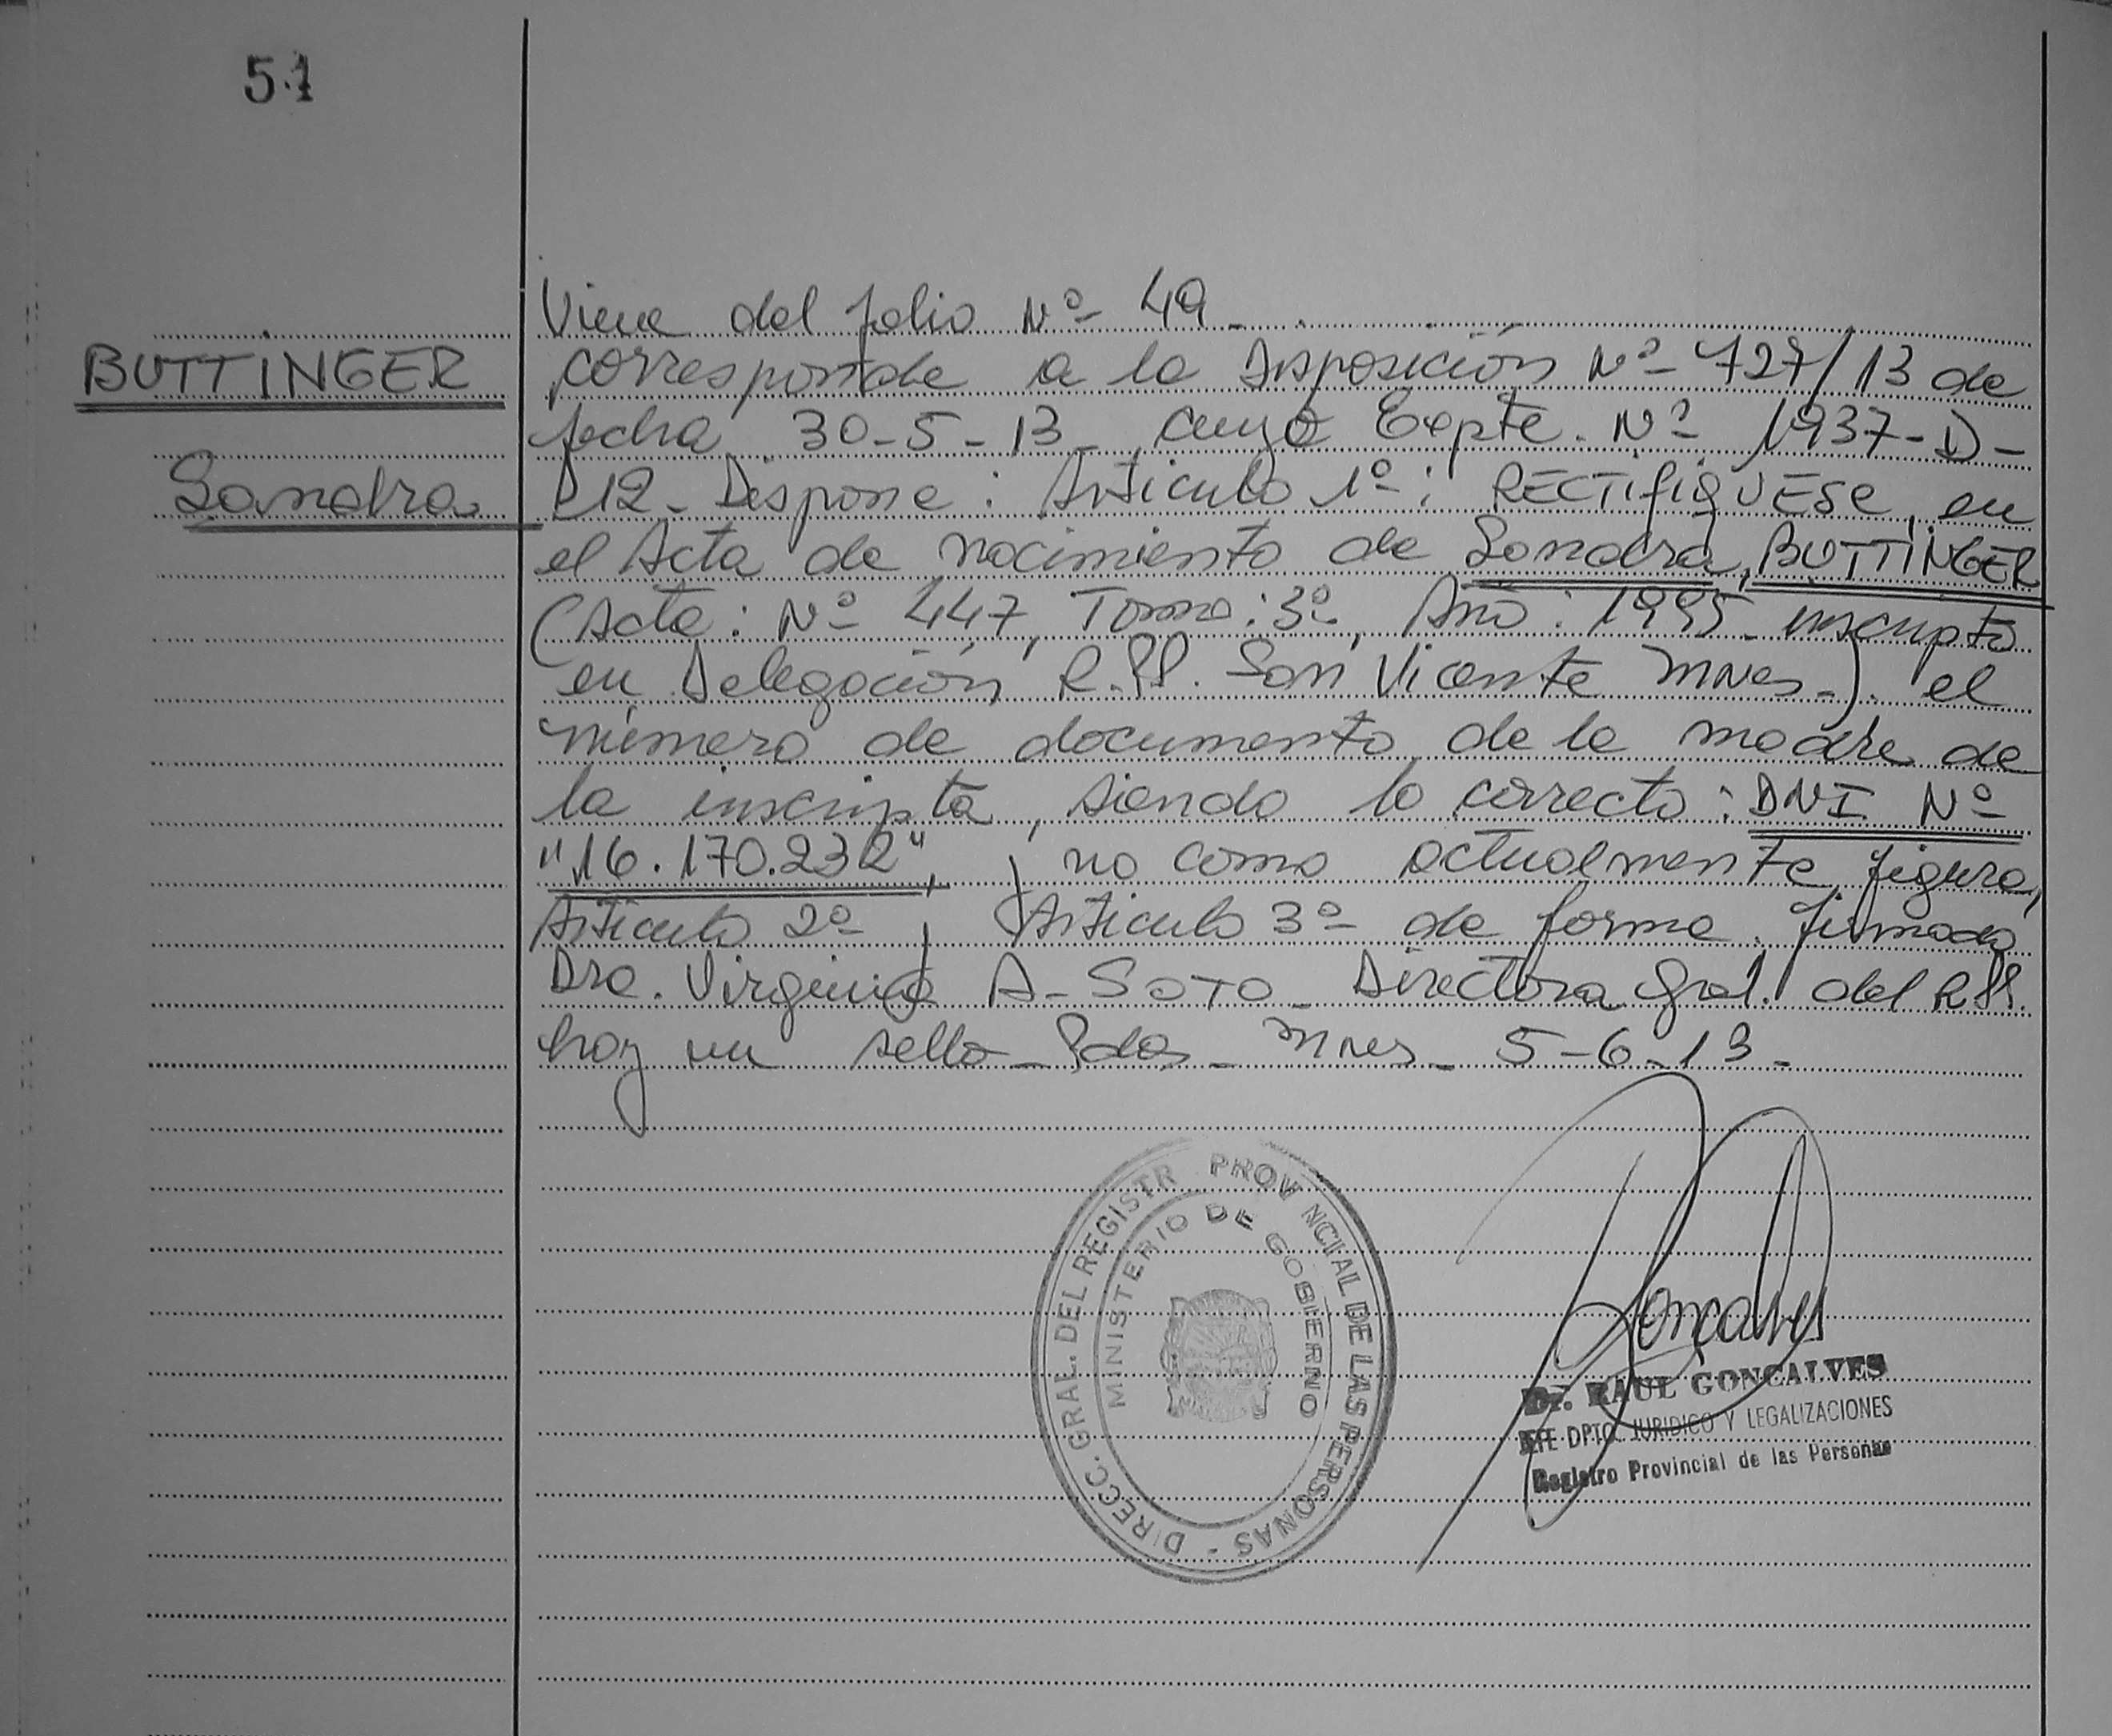 51
Viene del folio Nº 49
BUTTINGER
Sandra
corresponde a la Disposición Nº 727/13 de
fecha 30-5-13 cuyo Expte. Nº 1937-D-
12- Dispone: Articulo 1º: RECTIFIQUESE, en
el Acta de nacimiento de Sandra, BUTTINGER
(Acta: Nº 447, Tomo: 3º, Año: 1995 inscripta
en Delegación R.PP. San Vicente Mnes-) el
número de documento de la madre de
la inscripta, siendo lo correcto: DNI Nº
"16.170.232", y no como actualmente figura,
Artículo 2º y Artículo 3º de forma. firmado
Dra. Virginia A- SOTO- Directora Gral. del R.PP.
hay un sello- Pdas- Mnes- 5-6-13-
DIRECC. GRAL. DEL REGISTR PROV NCIAL DE LAS PERSONAS -
MINISTERIO DE GOBIERNO
Goncalves
Dr. RAUL GONCALVES
JEFE DPTO. JURIDICO Y LEGALIZACIONES
Registro Provincial de las Personas